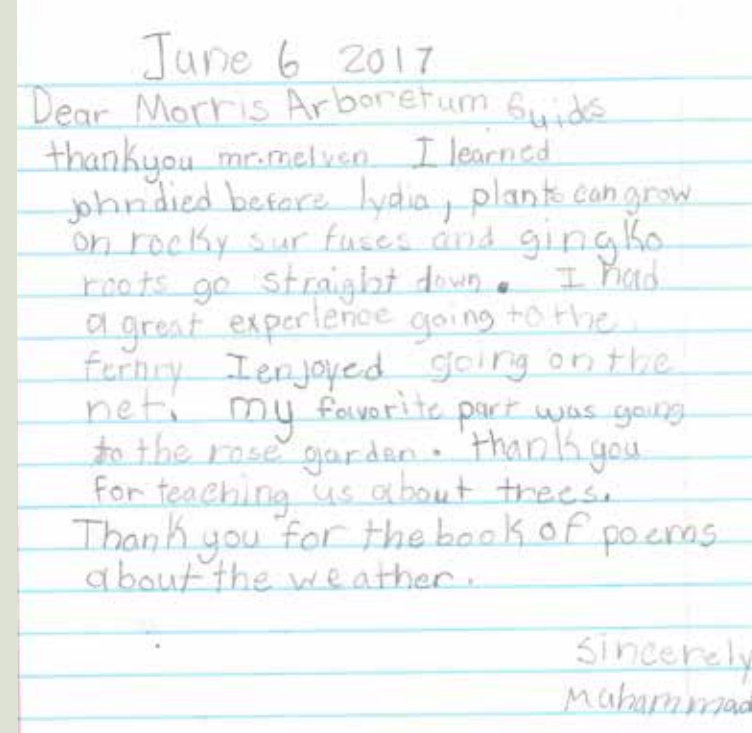 June 6 2017
Dear Morris Arboretum Guids
thankyou mr.melven I learned
john died before lydia, plants can grow
on rocky sur fuses and gingko
roots go straight down. I had
a great experience going to the
fernry I enjoyed going on the
net. my favorite part was going
to the rose garden. thank you
for teaching us about trees.
Thank you for the book of poems
about the weather.
Sincerely
Muhammad